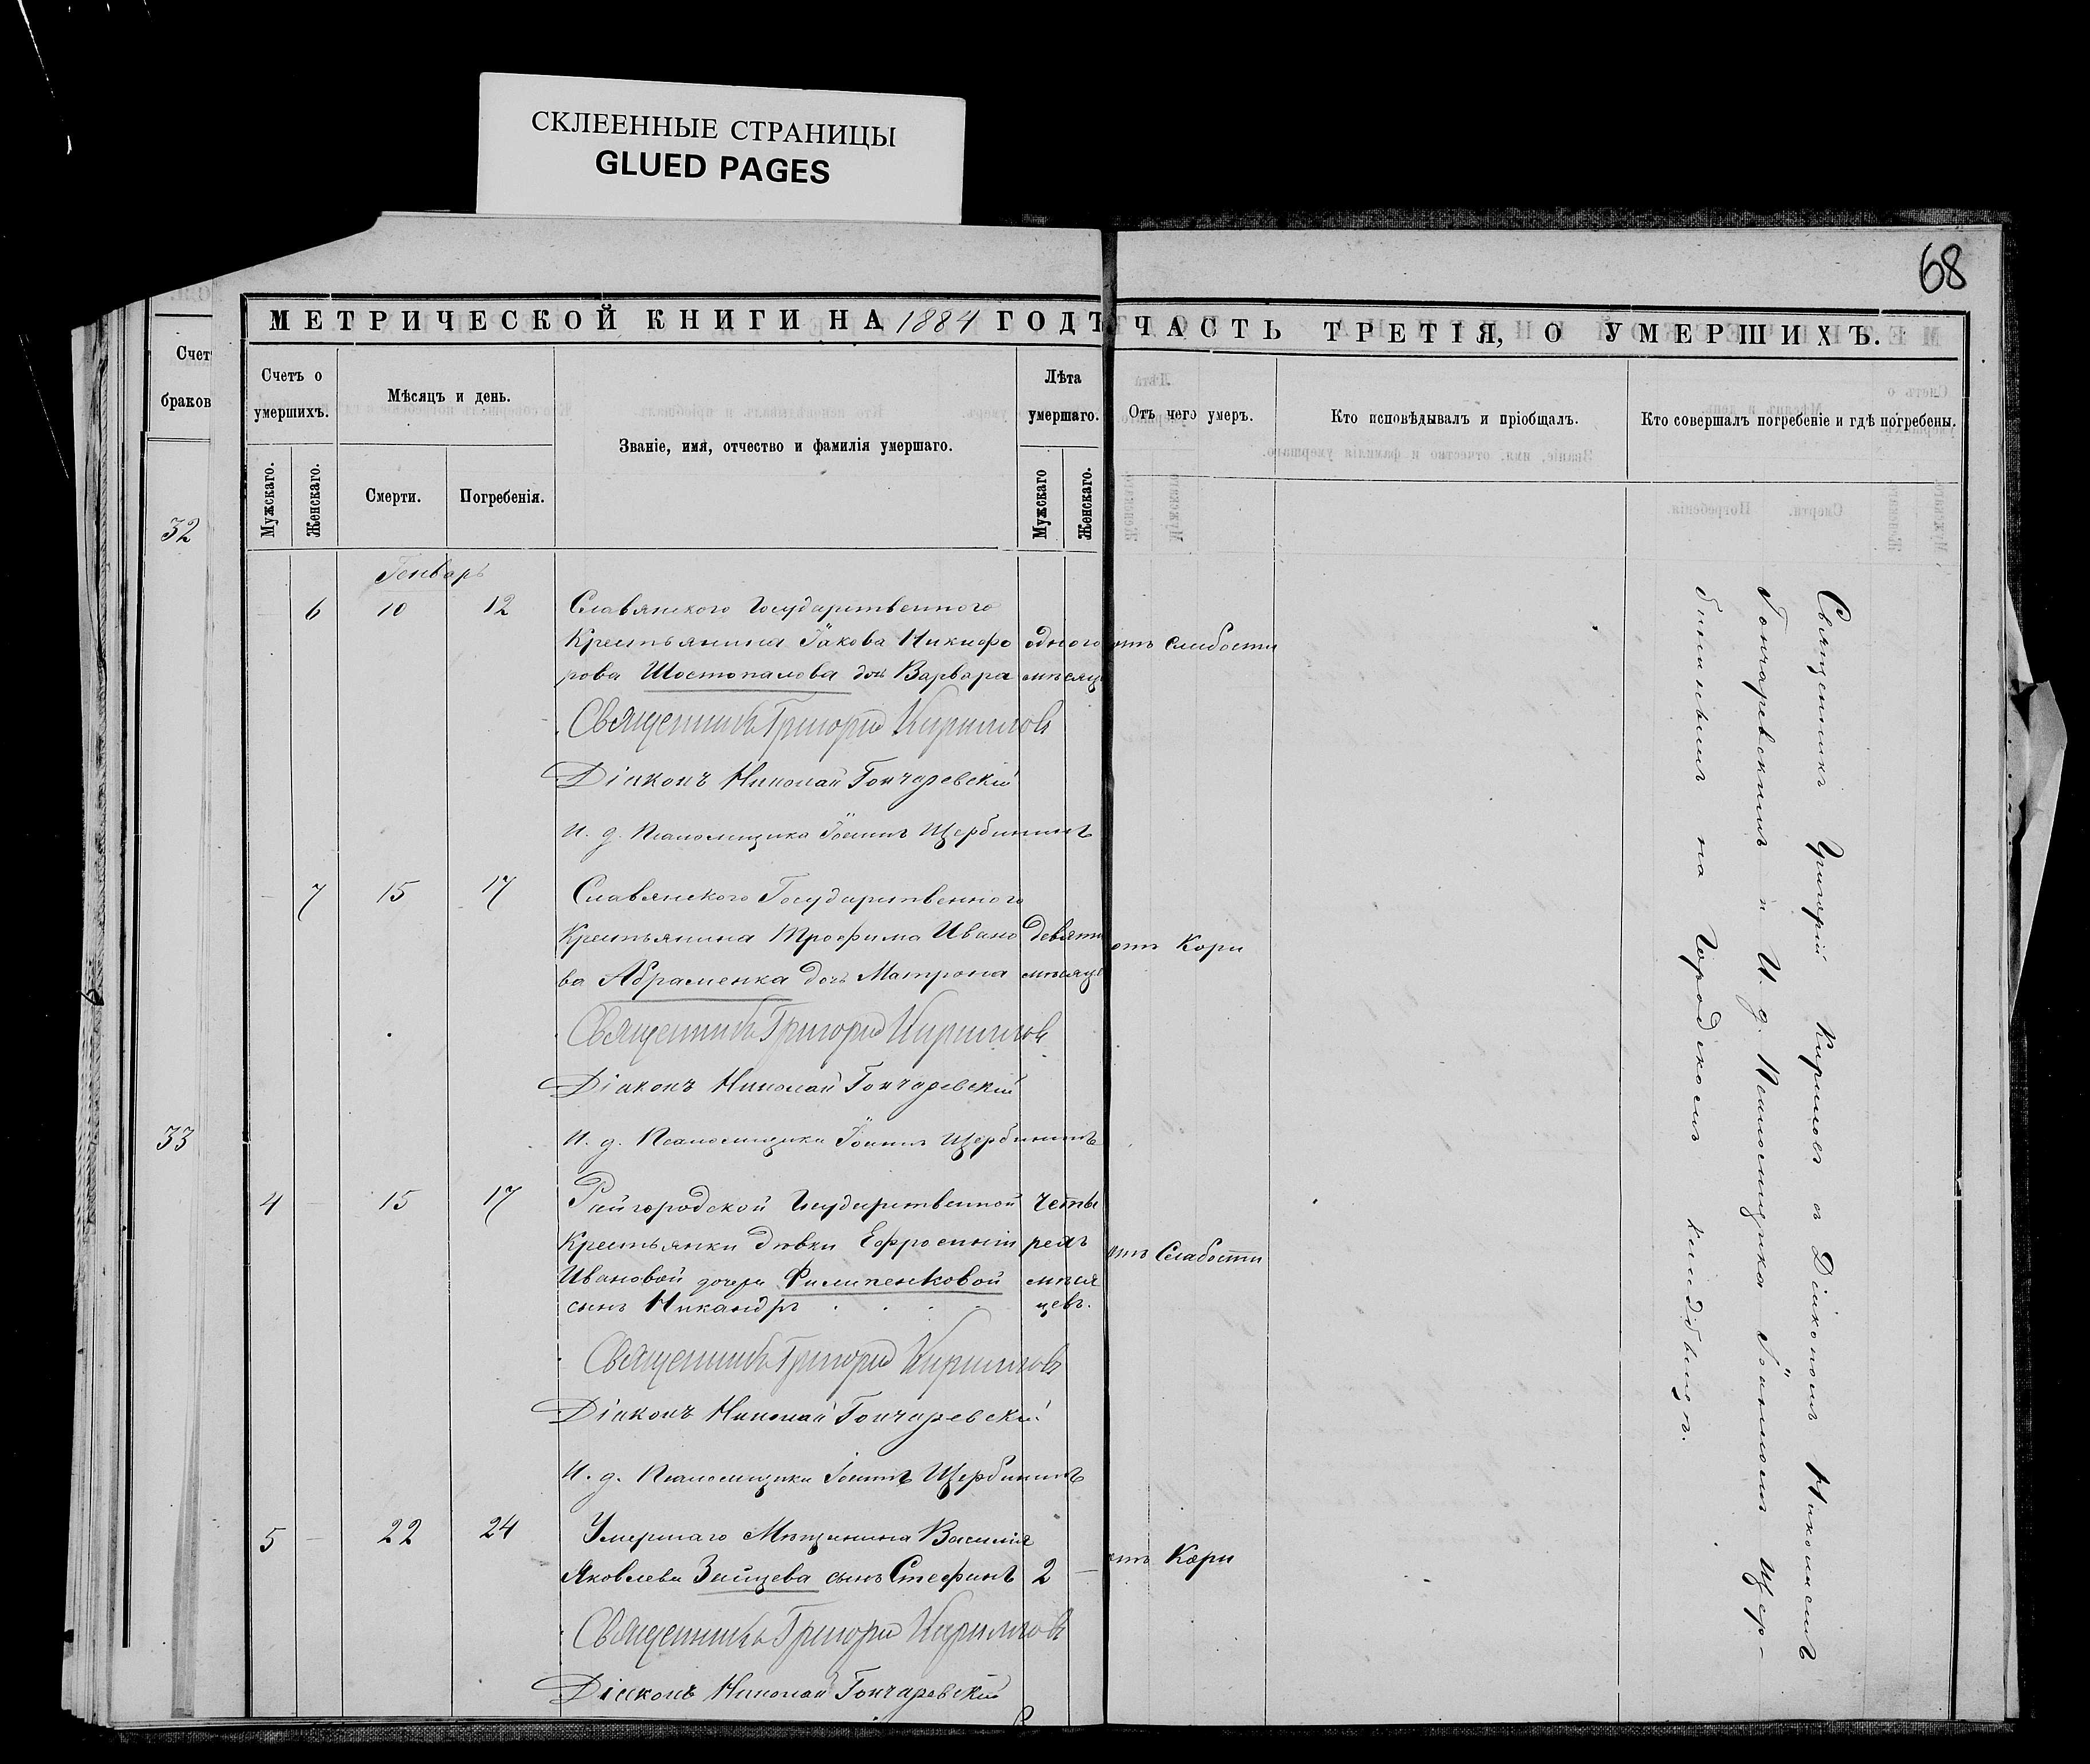 СКЛЕЕННЫЕ СТРАНИЦЫ
GLUED PAGES
68
МЕТРИЧЕСКОЙ КНИГИ НА 1884 ГОДЪ
ЧАСТЬ ТРЕТІЯ, О УМЕРШИХЪ.
Счет
браков
32
33
Счетъ о умершихъ.
Мужскаго.
Женскаго.
Мѣсяцъ и день.
Смерти.
Погребенія.
Званіе, имя, отчество и фамилія умершаго.
Лѣта умершаго.
Мужскаго
Женскаго.
Отъ чего умеръ.
Кто исповѣдывалъ и пріобщалъ.
Кто совершалъ погребеніе и гдѣ погребены.
Генварь
6 10 12 Славянского Государственного
Крестьянина Іакова Никифо одного отъ слабости
рова Шостопалова дочь Варвара мѣсяц
Священникъ Григорій Кириллов
Діаконъ Николай Гончаревскій
И. д. Псаломщика Іоаннъ Щербининъ
7 15 17 Славянского Государственного
Крестьянина Трофима Ивано девяти отъ Кори
ва Абраменка дочь Матрона мѣсяце
Священникъ Григорій Кириллов
Діаконъ Николай Гончаревскій
И. д. Псаломщика Іоаннъ Щербининъ
4 15 17 Райгородской Государственной четы
Крестьянки дѣвки Ефросиніи рехъ отъ Слабости
Ивановой дочери Филипенковой мѣся
сынъ Никандръ цевъ.
Священникъ Григорій Кириллов
Діаконъ Николай Гончаревскій
И. д. Псаломщика Іоаннъ Щербининъ
5 22 24 Умершаго Мѣщанина Василія
Яковлева Зайцева сынъ Стефанъ 2 отъ Кори
Священникъ Григорій Кириллов
Діаконъ Николай Гончаревскій
Священникъ Григорій Кирилов съ Діакономъ Николаемъ
Гончаревскимъ и И. д. Псаломщика Іоанномъ Щер-
бининымъ на Городскомъ кладбищѣ.